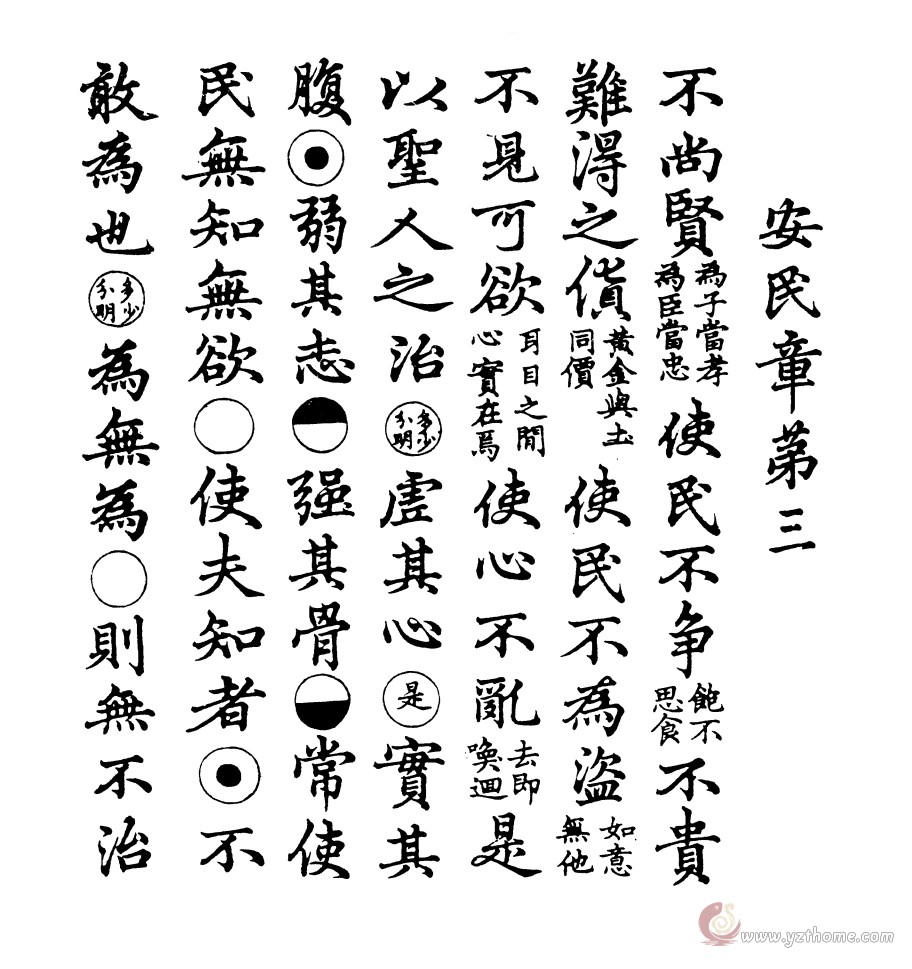 安民章第三
不尚賢為子當孝為臣當忠使民不争飽不思食不貴
難得之貨黃金與土同價使民不為盜如意無他
不見可欲耳目之間心實在焉使心不亂去即喚迴是
以聖人之治多少分明虛其心是實其
腹弱其志强其骨常使
民無知無欲使夫知者不
敢為也多少分明為無為則無不治
www.yzthome.com